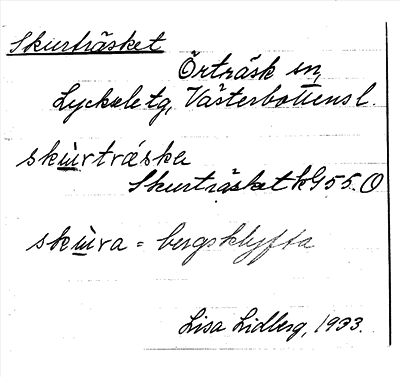 Skurträsket
Örträsk sn,
Lycksele tg, Västerbottens l.
skùrträska
Skurträsket k G 55. O
skùra = bergsklyfta
Lisa Lidberg, 1933.